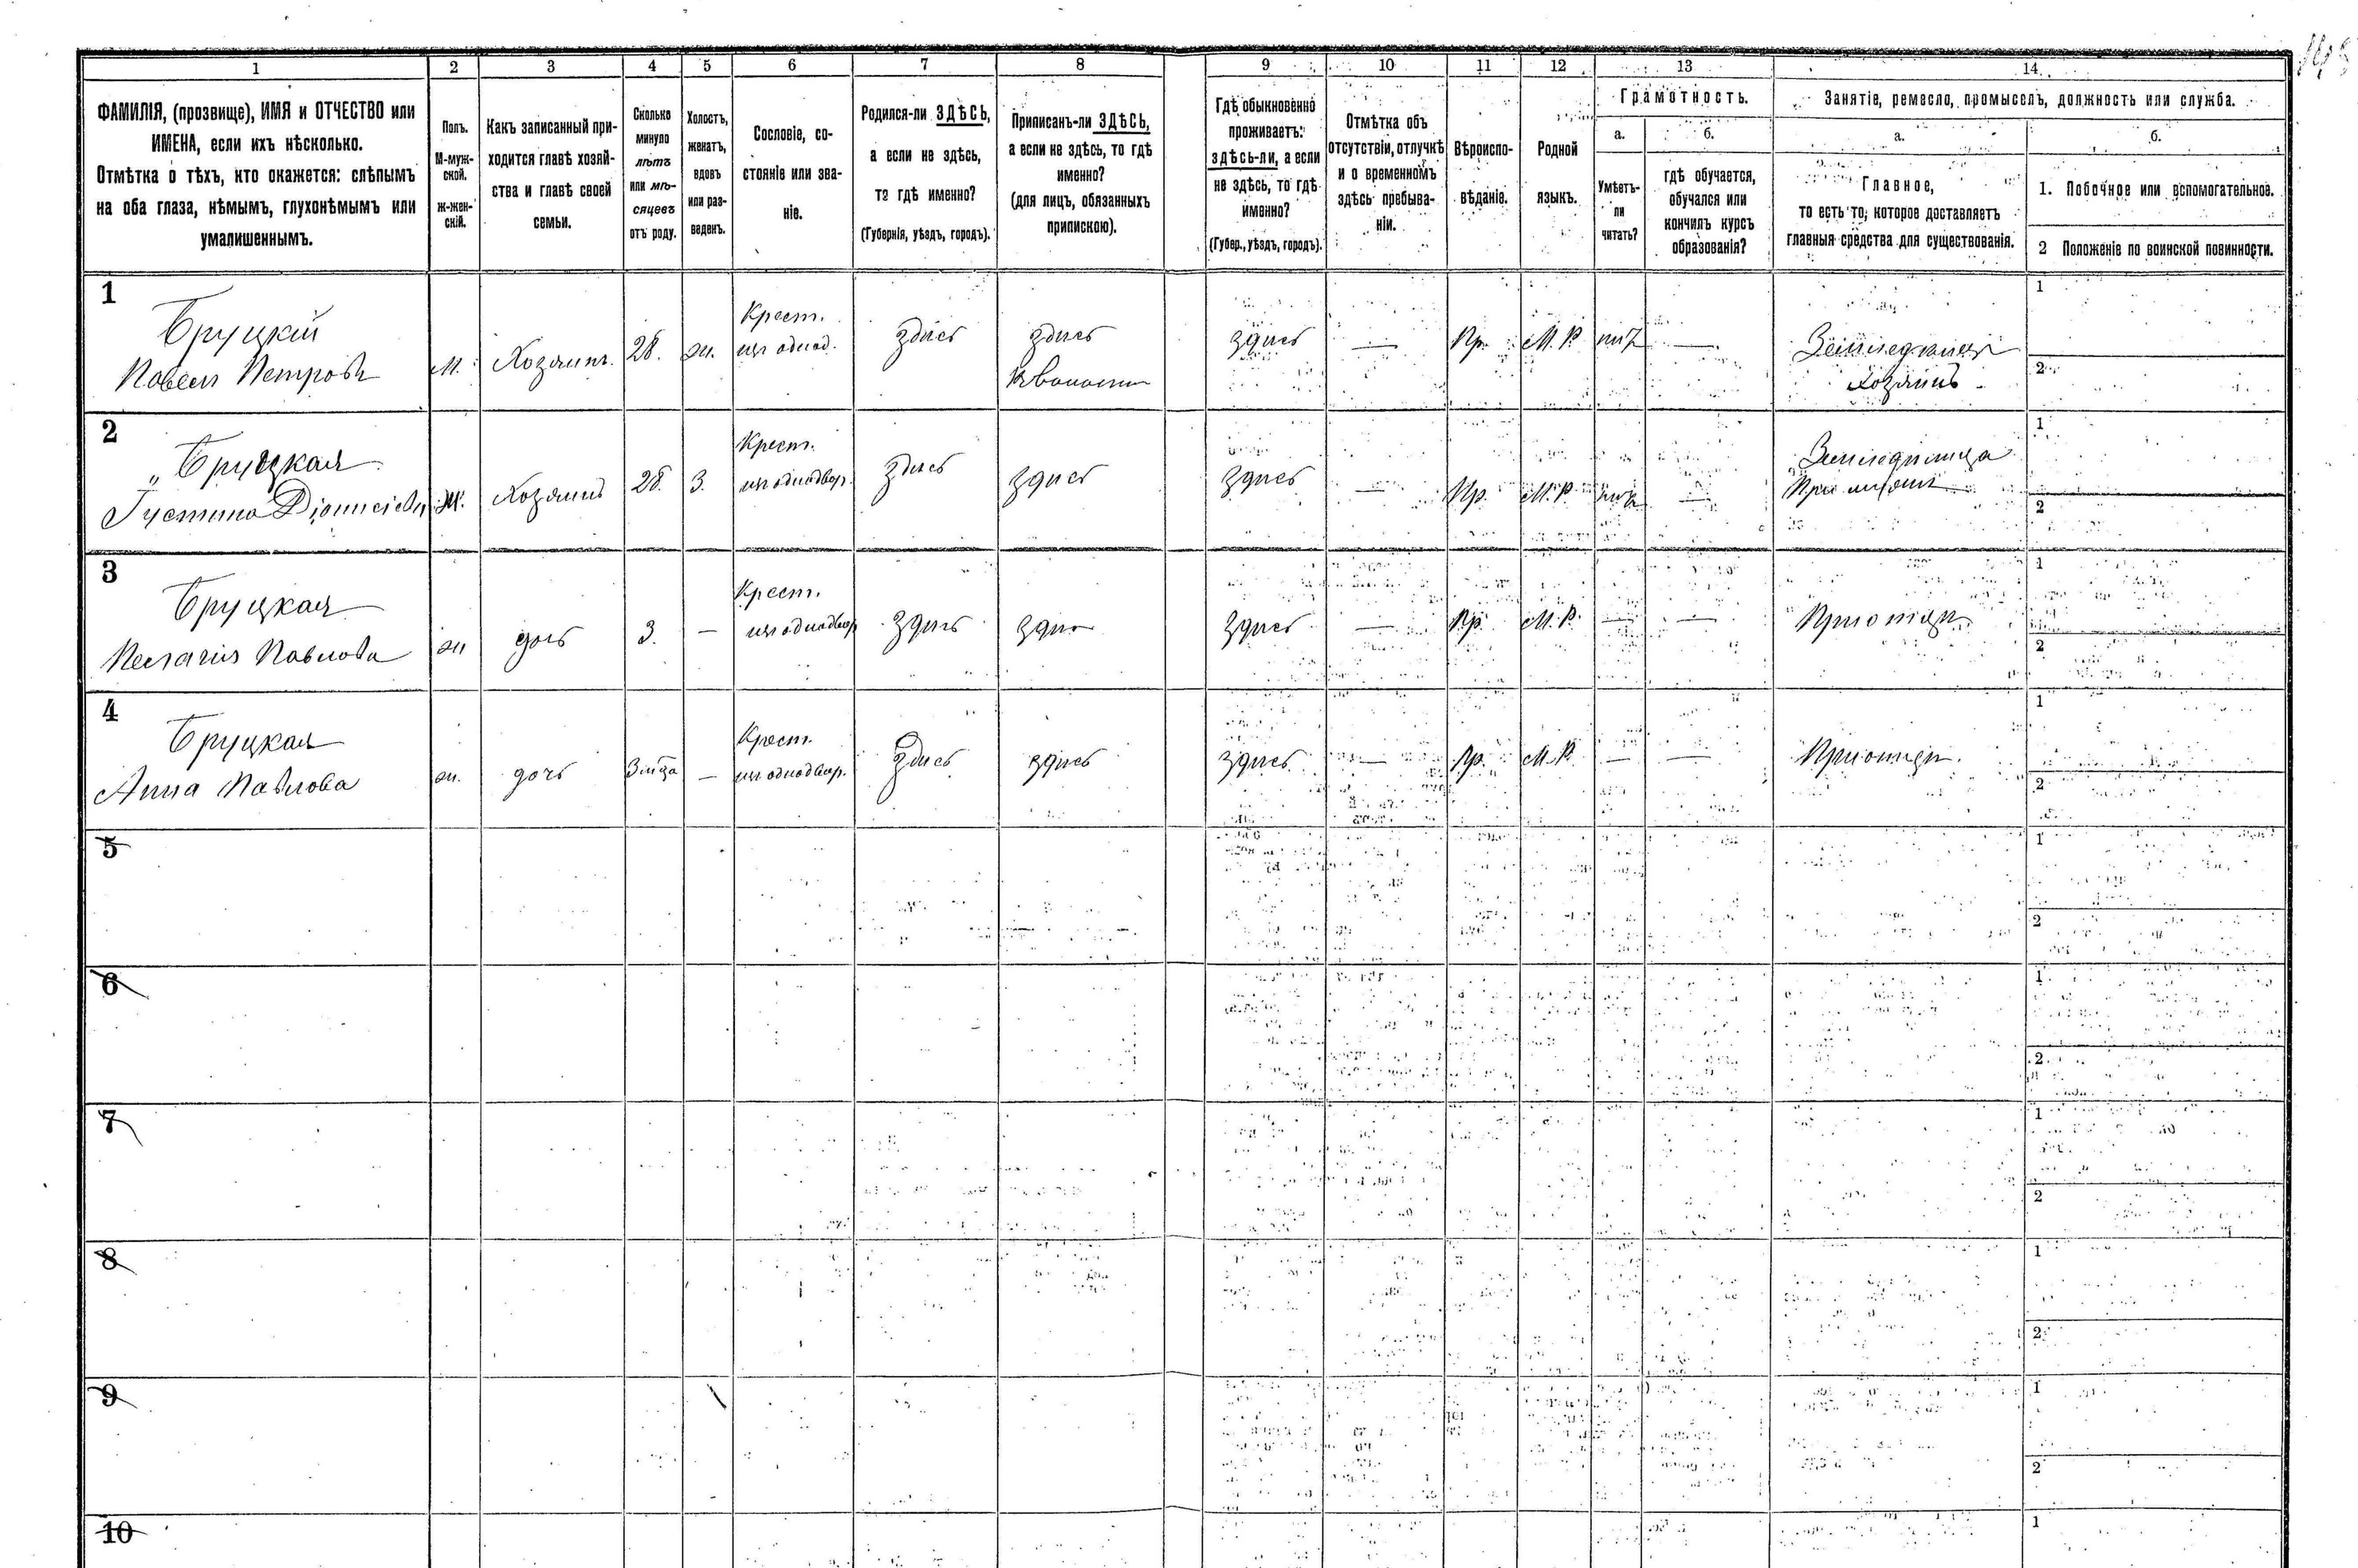 1 2 3 4 5 6 7 8 9 10 11 12 13 14
ФАМИЛІЯ, (прозвище), ИМЯ и ОТЧЕСТВО или
ИМЕНА, если ихъ нѣсколько.
Отмѣтка о тѣхъ, кто окажется: слѣпымъ
на оба глаза, нѣмымъ, глухонѣмымъ или
умалишеннымъ.
Полъ.
М-муж-
ской.
ж-жен-
скій.
Какъ записанный при-
ходится главѣ хозяй-
ства и главѣ своей
семьи.
Сколько
минуло
лѣтъ
или мѣ-
сяцевъ
отъ роду.
Холостъ,
женатъ,
вдовъ
или раз-
веденъ.
Сословіе, со-
стояніе или зва-
ніе.
Родился-ли ЗДѢСЬ,
а если не здѣсь,
то гдѣ именно?
(Губернія, уѣздъ, городъ).
Приписанъ-ли ЗДѢСЬ,
а если не здѣсь, то гдѣ
именно?
(для лицъ, обязанныхъ
припискою).
Гдѣ обыкновенно
проживаетъ:
здѣсь-ли, а если
не здѣсь, то гдѣ
именно?
(Губер., уѣздъ, городъ).
Отмѣтка объ
отсутствіи, отлучкѣ
и о временномъ
здѣсь пребыва-
ніи.
Вѣроиспо-
вѣданіе.
Родной
языкъ.
Грамотность.
а.
Умѣетъ-
ли
читать?
б.
гдѣ обучается,
обучался или
кончилъ курсъ
образованія?
Занятіе, ремесло, промыселъ, должность или служба.
а.
Главное,
то есть то, которое доставляетъ
главныя средства для существованія.
б.
1. Побочное или вспомогательное.
2 Положеніе по воинской повинности.
1
Бруцкій
Павелъ Петровъ
М. Хозяинъ. 28. ж.
Крест.
изъ однод.
здѣсь
здѣсь
здѣсь — Пр. М. Р. —
Хозяинъ
1
2
2
Бруцкая
Ж. 28. З.
Крест.
изъ однодвор.
здѣсь здѣсь
здѣсь — Пр. М. Р. —
1
2
3
Бруцкая
Пелагия Павлова
ж дочь 3. —
Крест.
изъ однодвор
здѣсь
здѣсь — Пр. М. Р. — —
При отцѣ
1
2
4
Бруцкая
Анна Павлова
ж. дочь —
Крест.
изъ однодвор.
здѣсь здѣсь
здѣсь — Пр. М. Р. — —
При отцѣ
1
2
5
1
2
6
1
2
7
1
2
8
1
2
9
1
2
10
1